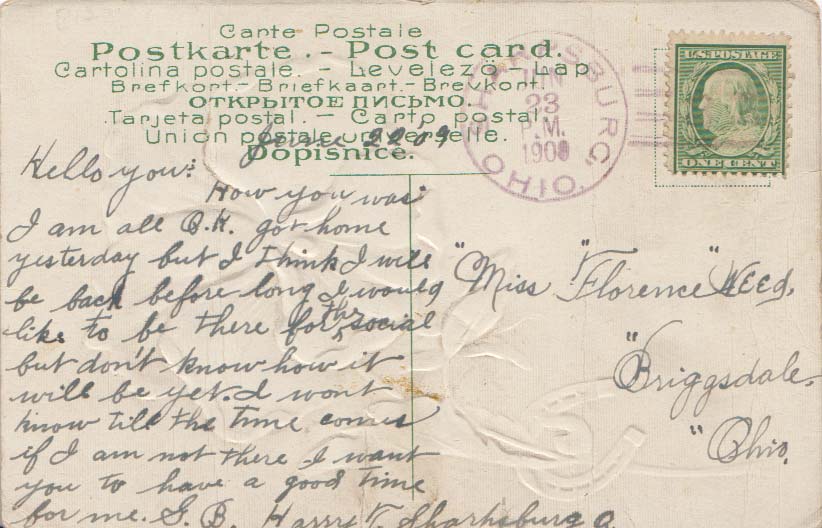 Carte Postale
Postkarte. - Post card.
Cartolina postale. - Levelező-Lap
Brefkort.-Briefkaart.-Brevkort.
ОТКРЫТОЕ ПИСЬМО.
Tarjeta postal. - Carto postal.
Union postale universelle.
Dopisnice.
June 22 09
SHARPSBURG, OHIO
JUN
23
P.M.
U.S. POSTAGE
ONE CENT
Hello you:
How you was
I am all O.K. got home
yesterday but I think I will
be back before long I would
like to be there for the social
but don't know how it
will be yet. I wont
know till the time comes
if I am not there I want
you to have a good time
for me. G. B. Harry T. Sharpsburg O.
"Miss "Florence "Weed.
"Briggsdale.
"Ohio.